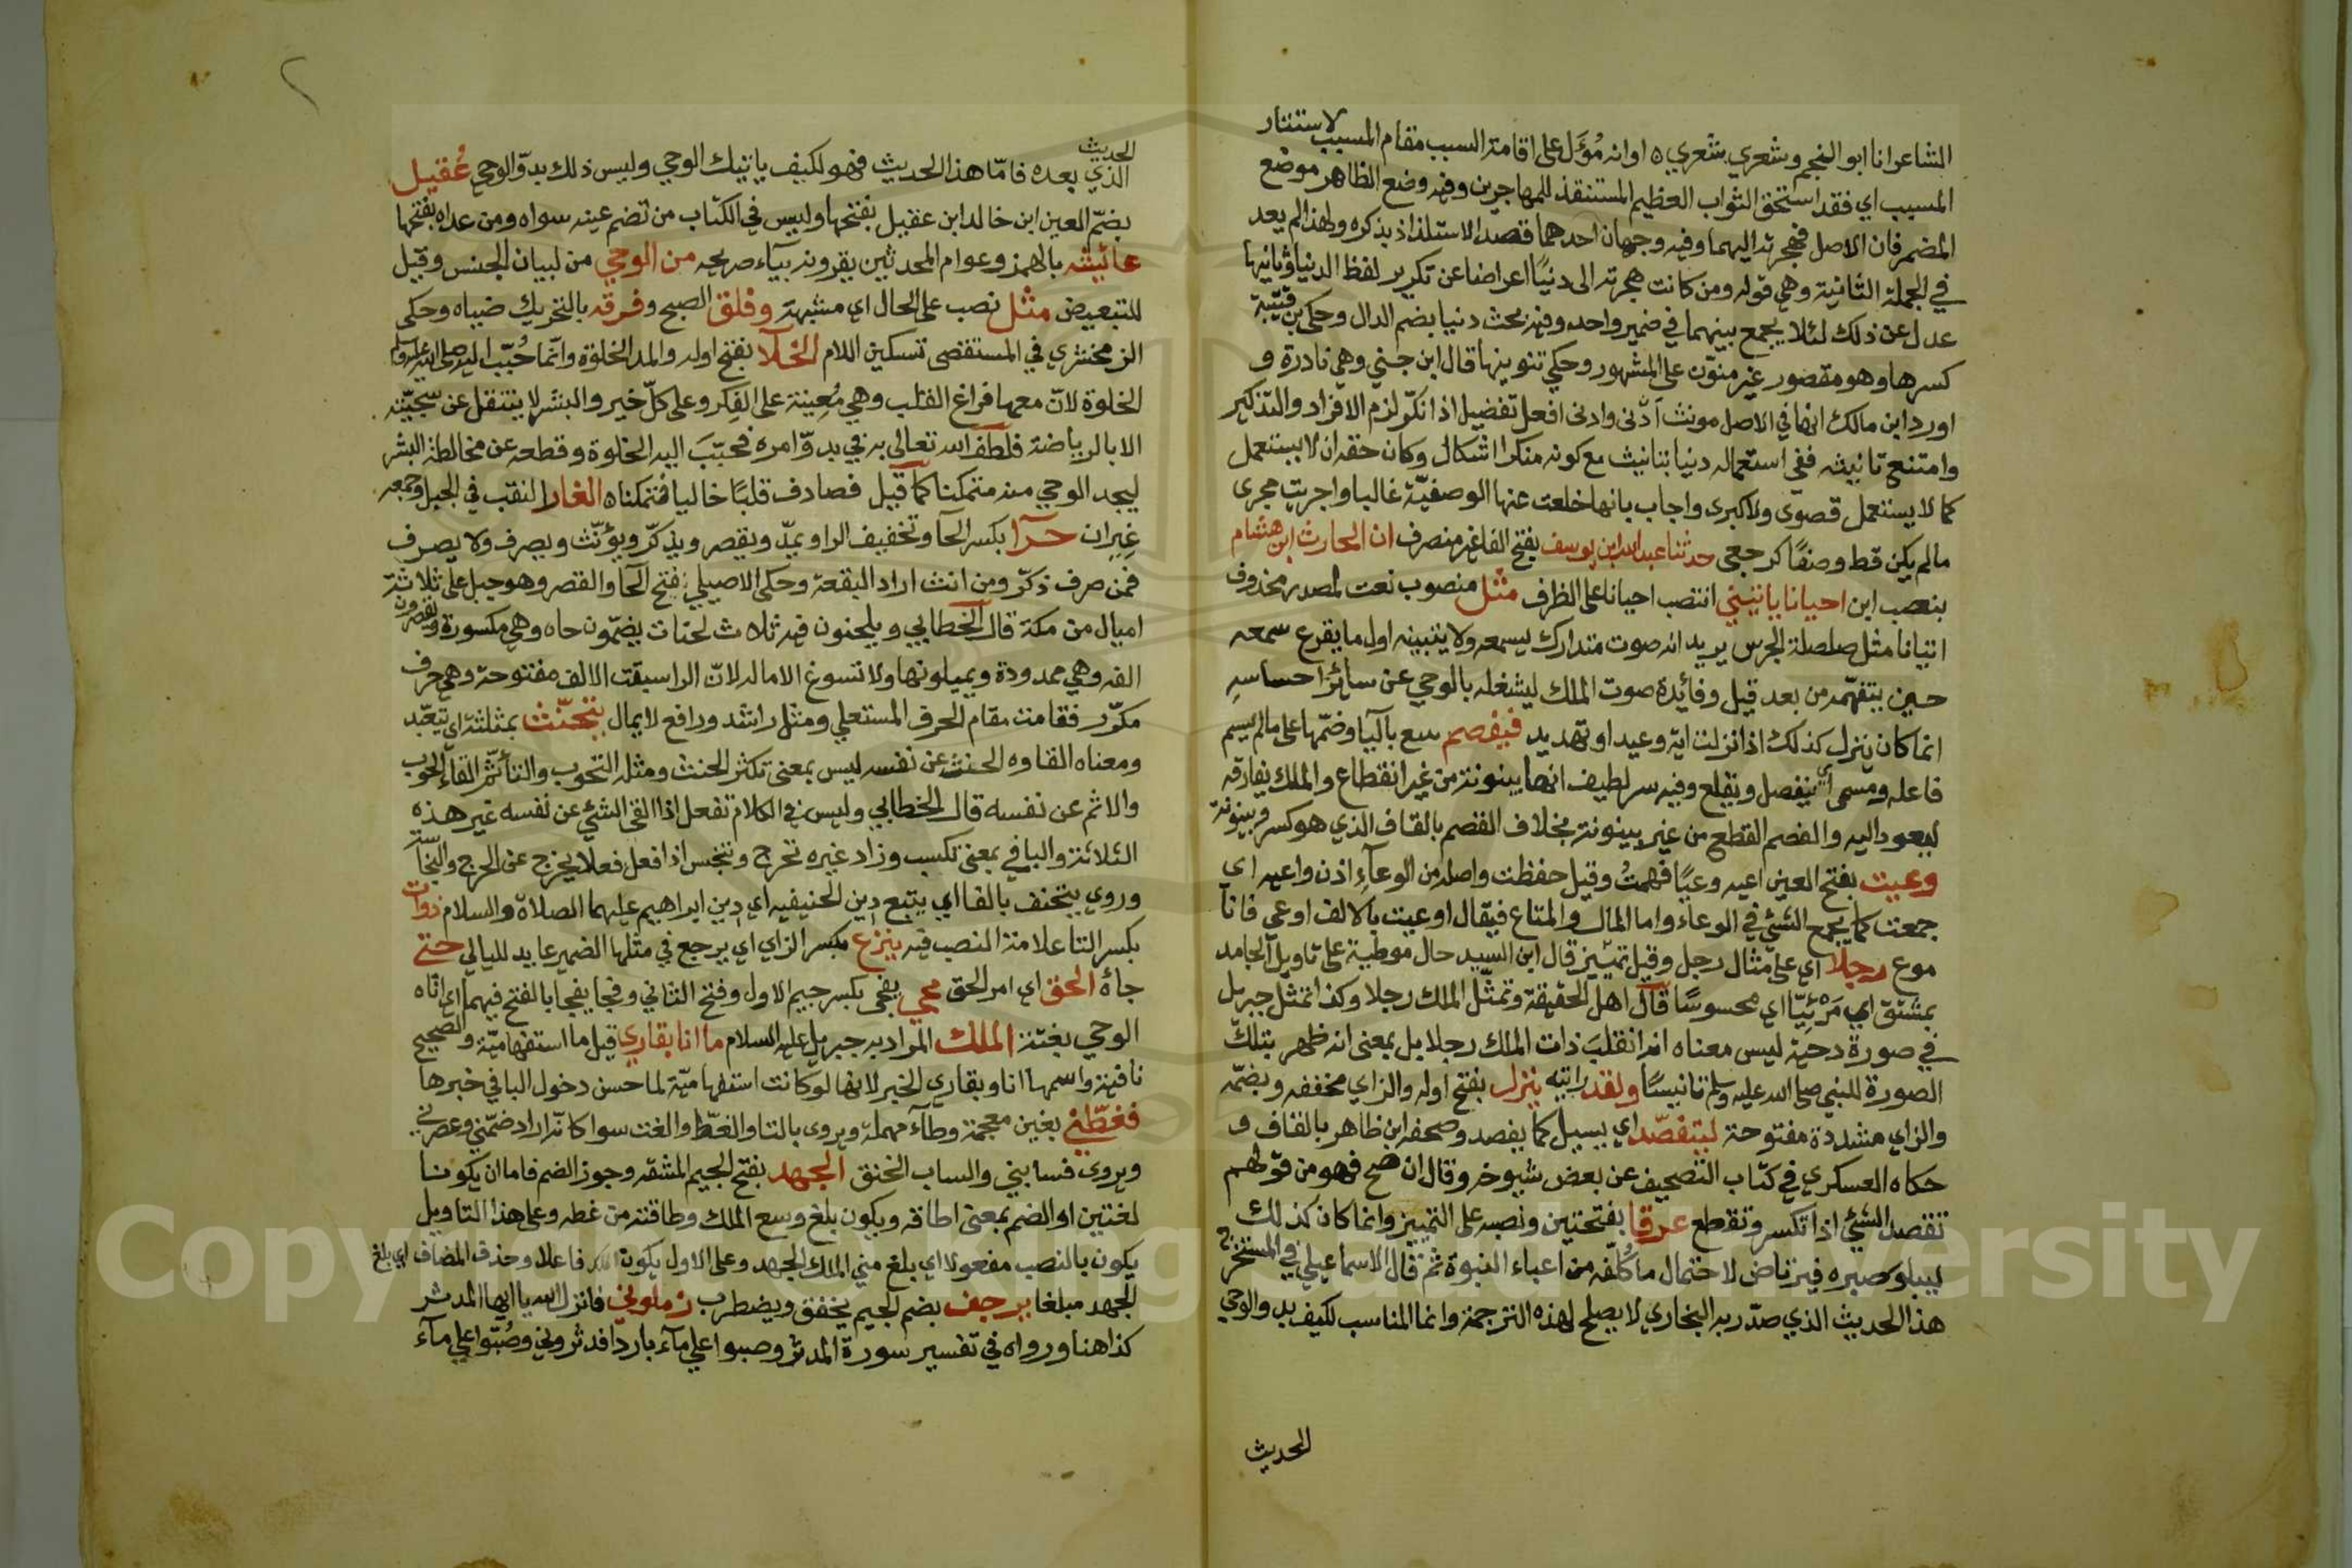 الشاعر انا ابو النجم وشعري شعري ه او انه مُؤَل على اقامة السبب مقام المسبب لاستتار
المسبب اي فقد استحق الثواب العظيم المستنقذ للمهاجرين وفيه وضع الظاهر موضع
المضمر فان الاصل فهجرته اليهما وفيه وجهان احدهما قصد الاستلذاذ بذكره ولهذا لم يعد
في الجملة الثانية وهي قوله ومن كانت هجرته الى دنيًا اعراضا عن تكرير لفظ الدنيا وثانيها
عدل عن ذلك لئلا يجمع بينهما في ضمير واحد وفيه بحث دنيا بضم الدال وحكى بن قتيبة
كسرها وهو مقصور غير منوّن على المشهور وحكي تنوينها قال ابن جني وهي نادرة و
اورد ابن مالك انها في الاصل مونث أدنى وادنى افعل تفضيل اذا نكّر لزم الافراد والتذكير
وامتنع تانيثه ففي استعماله دنيا بتانيث مع كونه منكرا اشكال وكان حقه ان لا يستعمل
كما لا يستعمل قصوى ولا كبرى واجاب بانها خلعت عنها الوصفيّة غالبا واجريت مجرى
مالم يكن قط وصفًا كرجعى حدثنا عبد الله ابن يوسف بفتح الفا غير منصرف ان الحارث ابن هشام
بنصب ابن احيانا ياتيني انتصب احيانا على الظرف مثل منصوب نعت لمصدر محذوف
اتيانا مثل صلصلة الجرس يريد انه صوت متدارك يسمعه ولا يتبينه اول ما يقرع سمعه
حين يتفهّمه من بعد قيل وفائدة صوت الملك ليشغله بالوحي عن سائر احساسهِ
انما كان ينزل كذلك اذا نزلت اية وعيد او تهديد فيفصم سع بآليا وضمّها على مالم يسم
فاعله ومسمى اي ينفصل ويقلع وفيه سر لطيف انها بينونة من غير انقطاع والملك يفارقه
ليعود اليه والفصم القطع من غير بينونة بخلاف القصم بالقاف الذي هو كسر وبينونة
وعيت بفتح العين اعيه وعيًا فهمتُ وقيل حفظت واصله من الوعآءِ اذن واعيه اى
جمعت كما يجمع الشئي في الوعاء واما المال والمتاع فيقال اوعيت بالالف اوعي فانا
موع رجلا اي على مثال رجل وقيل تمييز قال ابن السيد حال موطية على تاويل الجامد
بمشتق اي مَرْئِيّا اي محسوسًا قال اهل الحقيقة وتمثّل الملك رجلا وكذا تمثل جبريل
في صورة دحية ليس معناه انه انقلبَ ذات الملك رجلا بل بمعنى انه ظهر بتلك
الصورة للنبي صلى الله عليه وسلم تانيسًا ولقد رايته ينزل بفتح اوله والزاي مخففه وبضمّه
والزاي مشددة مفتوحة ليتفصّد اي يسيل كما يفصد وصحفه ابن ظاهر بالقاف و
حكاه العسكري في كتاب التصحيف عن بعض شيوخه وقال ان صح فهو من قولهم
تقصد الشئي اذا تكسر وتقطع عرقا بفتحتين ونصبه على التمييز وانما كان كذلك
ليبلو صبره فيرتاض لاحتمال ما كُلّفه من اعباء النبوة ثم قال الاسماعيلي في المستخرج
هذا الحديث الذي صدّر به البخاري لا يصلح لهذه الترجمة وانما المناسب لكيف بد والوحي
الحديث
الحديث
الذي بعده فامّا هذا الحديث فهو لكيف ياتيك الوحي وليس ذلك بدوّ الوحي عُقيل
بضمّ العين ابن خالد ابن عقيل بفتحها وليس في الكتاب من تضم عينه سواه ومن عداه بفتحها
عائيشه بالهمز وعوام المحدثين يقرونه بيآء صريحه من الوحي من لبيان الجنس وقيل
للتبعيض مثل نصب على الحال اي مشبهة وفلق الصبح وفرقه بالتحريك ضياه وحكى
الزمخشري في المستقصى تسكين اللام الخلآ بفتح اوله والمد الخلوة وانّما حُبّب اليه صلى الله عليه وسلم
الخلوة لانّ معها فراغ القلب وهي مُعِينة على الفِكر وعلى كلّ خير والبشر لا ينتقل عن سجيّته
الا بالرياضة فلطف الله تعالى به في بدوّ امره فحبّبَ اليه الخلوة وقطعه عن مخالطة البشر
ليجد الوحي منه متمكنا كما قيل فصادف قلبًا خاليا فتمكناه الغار النقب في الجبل وجمعه
غِيران حرآ بكسر الحآ وتخفيف الرا ويمدّ ويقصر ويذكّر ويؤنّث ويصرف ولا يصرف
فمن صرف ذكّر ومن انث اراد البقعة وحكى الاصيلي فتح الحا والقصر وهو جبل على ثلاثة
اميال من مكة قال الخطابي ويلحنون فيه ثلاث لحنات يضمّون حاه وهي مكسورة ويقصرون
الفه وهي ممدودة ويميلونها ولا تسوغ الاماله لانّ الرا سبقت الالف مفتوحة وهي حرف
مكرّر فقامت مقام الحرف المستعلي ومثل راشد ورافع لا يمال يتحنّث بمثلثه اي يتعبّد
ومعناه القاوه الحنث عن نفسه ليس بمعنى تكثر الحنث ومثله التحوب والتأثّم القآء الحوب
والاثم عن نفسه قال الخطابي وليس في الكلام تفعل اذا القى الشئي عن نفسه غير هذه
الثلاثة والباقي بمعنى تكسب وزاد غيره تحرج وتنجس اذا فعل فعلا يخرج عن الحرج والنجاسة
وروي يتحنف بالفا اي يتبع دين الحنيفيه اي دين ابراهيم عليهما الصلاة والسلام ذوات
بكسر التا علامة النصب فيه ينزع بكسر الزاي اي يرجع في مثلها الضمير عايد لليالي حتى
جاءَ الحق اي امر الحق فجي يفجى بكسر جيم الاول وفتح الثاني وفجا يفجا بالفتح فيهما اي اتاه
الوحي بغتة الملك المراد به جبريل عليه السلام ما انا بقاري قيل ما استفهاميّة والصحيح
نافية واسمها انا وبقاري الخبر لانها لو كانت استفهاميّة لما حسن دخول البا في خبرها
فغطّني بغين معجمة وطآء مهملة ويروى بالتا والغطّ والغت سوا كانّه اراد ضمّني وعصرني
ويروى فسابني والساب الخنق الجهد بفتح الجيم المشقه وجوز الضم فاما ان يكونا
لغتين او الضم بمعنى اطاقه ويكون بلغ وسع الملك وطاقته من غطه وعلى هذا التاويل
يكون بالنصب مفعولا اي بلغ مني الملك الجهد وعلى الاول يكون فاعلا وحذف المضاف اي بلغ
الجهد مبلغا يرجف بضم الجيم يخفق ويضطرب زملوني فانزل الله يا ايها المدثر
كذا هنا ورواه في تفسير سورة المدثر وصبوا علي مآء باردًا فدثروني وصُبّوا علي مآء